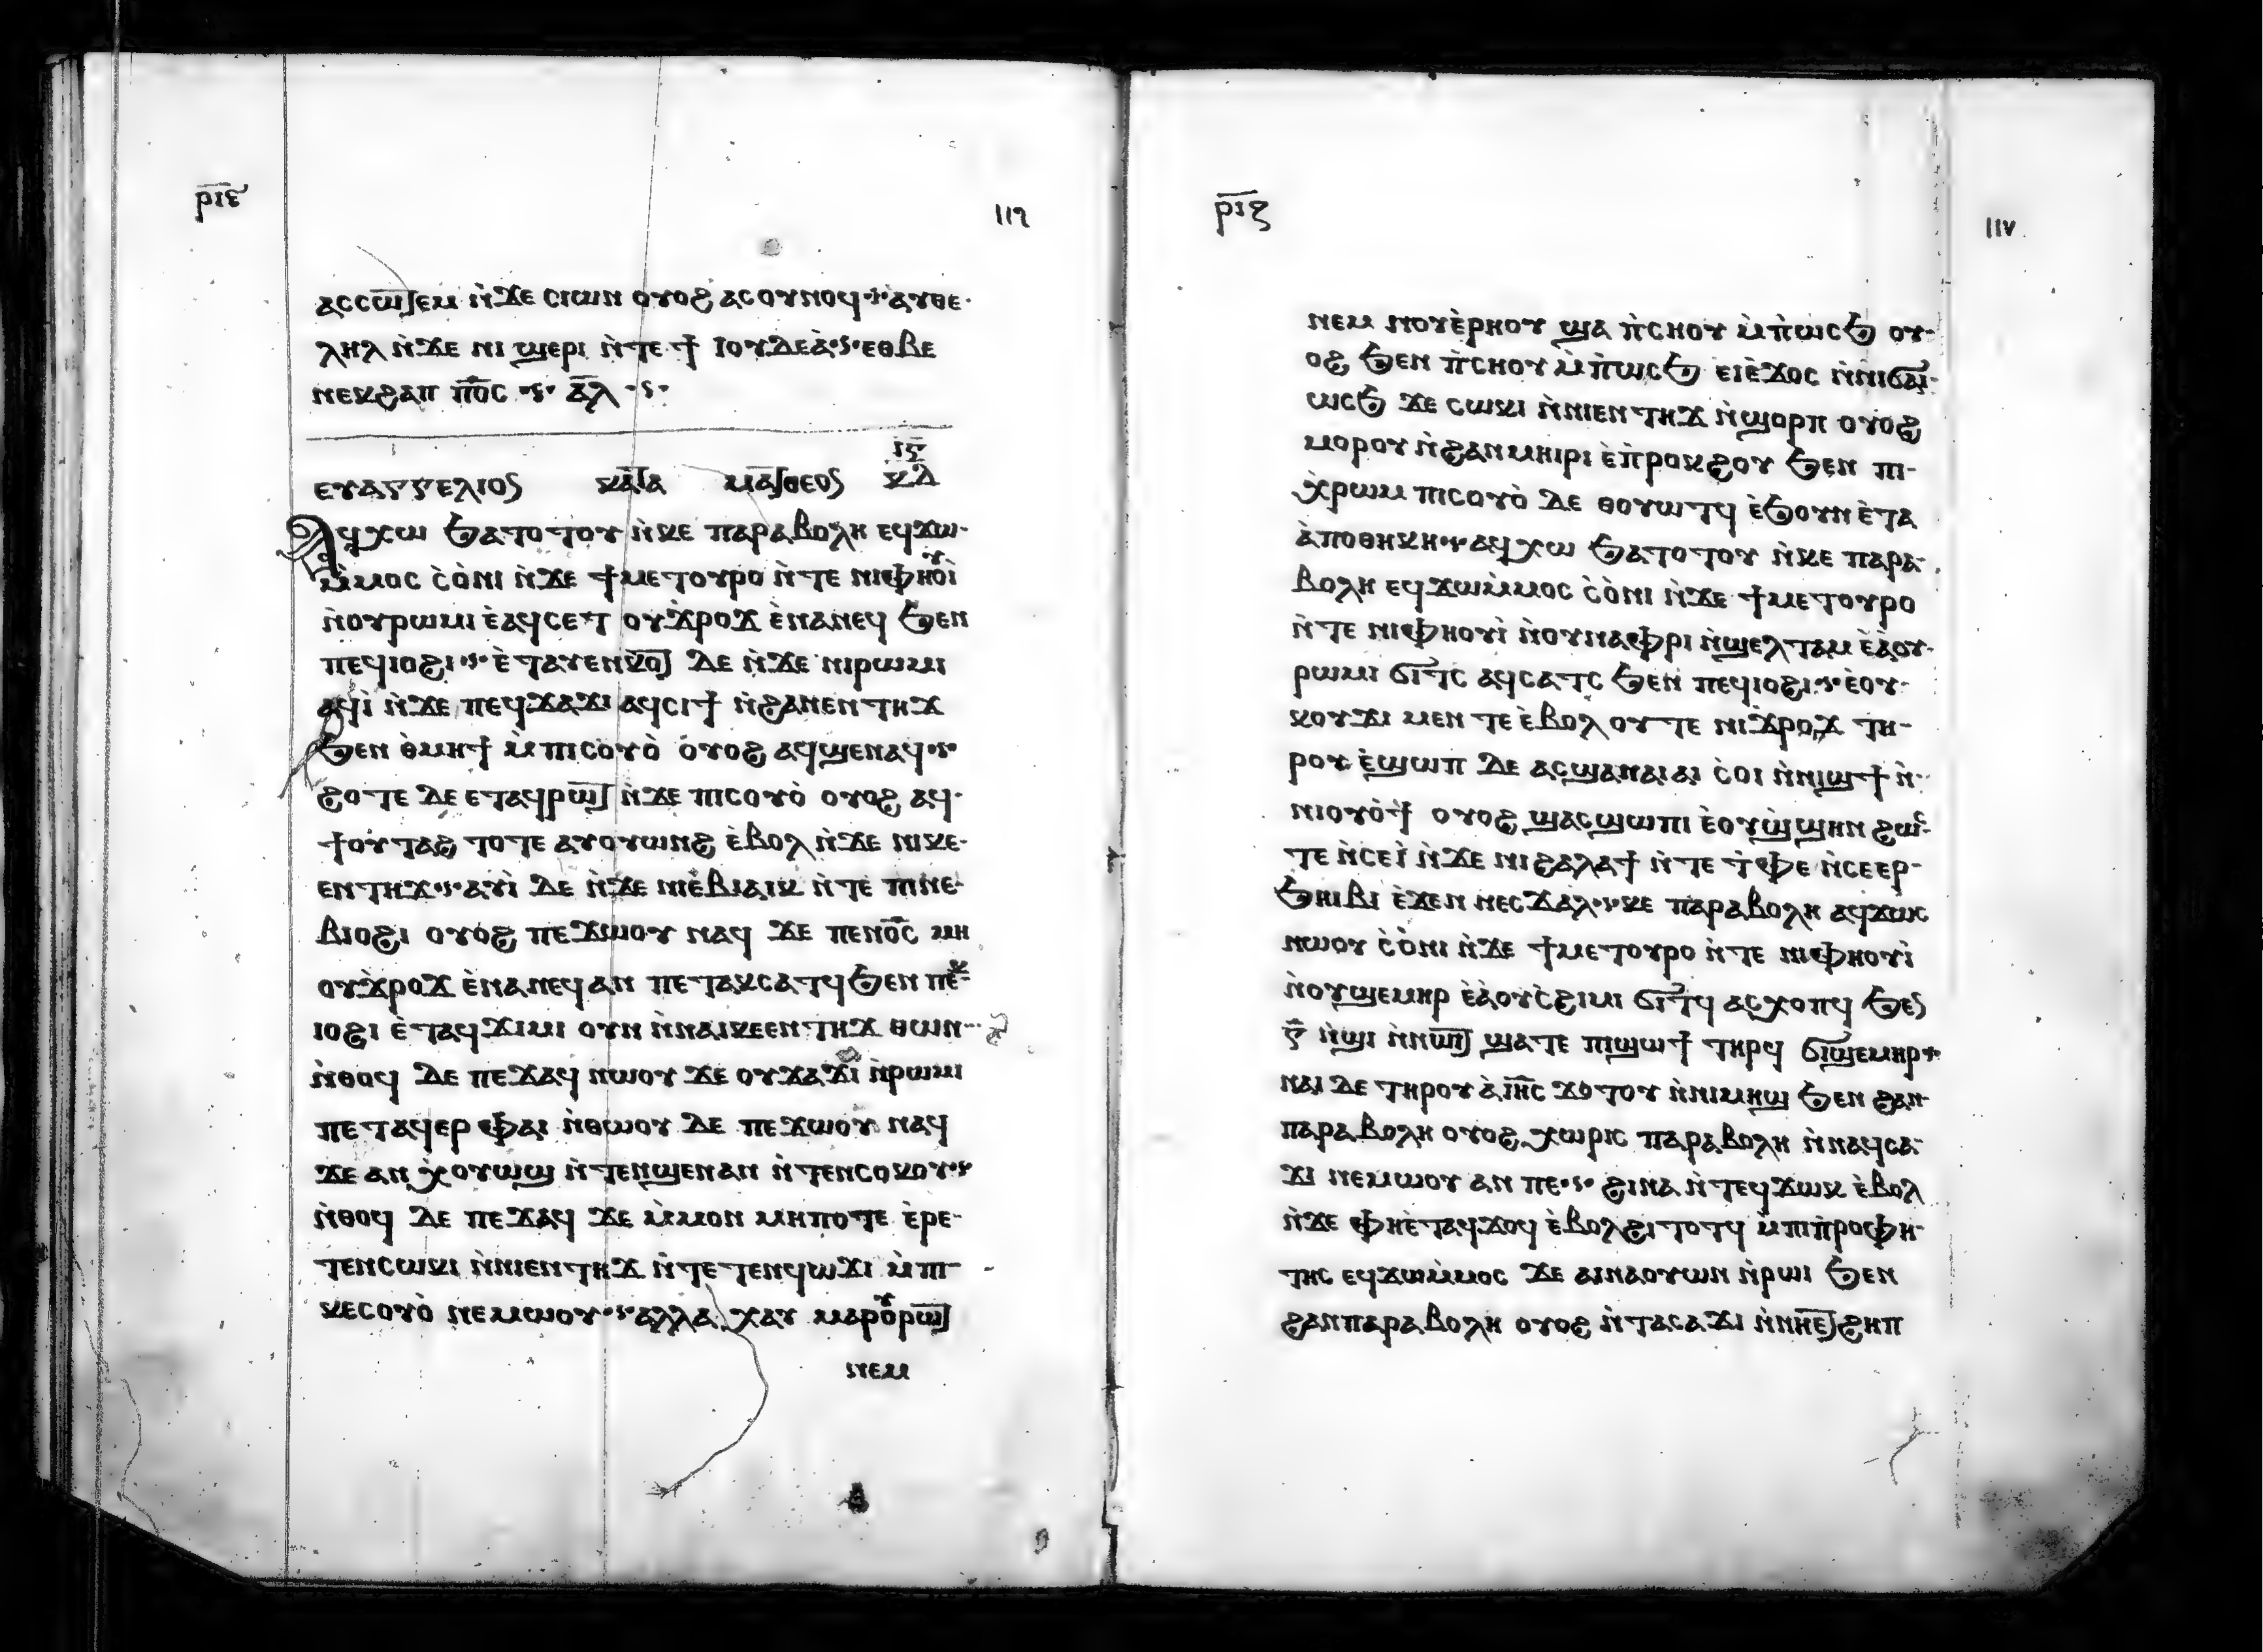 ⲣⲓⲉ
ⲁⲥⲥⲱⲧⲉⲙ ⲛ̀ϫⲉ ⲥⲓⲱⲛ ⲟⲩⲟϩ ⲁⲥⲟⲩⲛⲟϥ ⲁⲩⲑⲉ
ⲗⲏⲗ ⲛ̀ϫⲉ ⲛⲓ ϣⲉⲣⲓ ⲛ̀ⲧⲉ ϯ ⲓⲟⲩⲇⲉⲁ̀ ⲉⲑⲃⲉ
ⲛⲉⲕϩⲁⲡ ⲡ̅ⲟ̅ⲥ̅ ⲁ̅ⲗ̅
ⲉⲩⲁⲅⲅⲉⲗⲓⲟⲛ ⲕⲁⲧⲁ ⲙⲁⲧⲑⲉⲟⲛ ⲕⲇ
ⲁϥⲭⲱ ϧⲁⲧⲟⲧⲟⲩ ⲛ̀ⲕⲉ ⲡⲁⲣⲁⲃⲟⲗⲏ ⲉϥϫⲱ
ⲙ̀ⲙⲟⲥ ⲥ̀ⲟ̀ⲛⲓ ⲛ̀ϫⲉ ϯⲙⲉⲧⲟⲩⲣⲟ ⲛ̀ⲧⲉ ⲛⲓⲫⲏⲟⲩⲓ̀
ⲛ̀ⲟⲩⲣⲱⲙⲓ ⲉ̀ⲁϥⲥⲉⲧ ⲟⲩϫ̀ⲣⲟϫ ⲉ̀ⲛⲁⲛⲉϥ ϧⲉⲛ
ⲡⲉϥⲓⲟϩⲓ ⲉ̀ⲧⲁⲩⲉⲛⲕⲟⲧ ⲇⲉ ⲛ̀ϫⲉ ⲛⲓⲣⲱⲙⲓ
ⲁϥⲓ̀ ⲛ̀ϫⲉ ⲡⲉϥϫⲁϫⲓ ⲁϥⲥⲓϯ ⲛ̀ϩⲁⲛⲉⲛⲧⲏϫ
ϧⲉⲛ ⲑ̀ⲙⲏϯ ⲙ̀ⲡⲓⲥⲟⲩⲟ̀ ⲟⲩⲟϩ ⲁϥϣⲉⲛⲁϥ
ϩⲟⲧⲉ ⲇⲉ ⲉⲧⲁϥⲣⲱⲧ ⲛ̀ϫⲉ ⲡⲓⲥⲟⲩⲟ̀ ⲟⲩⲟϩ ⲁϥ
ϯⲟⲩⲧⲁϩ ⲧⲟⲧⲉ ⲁⲩⲟⲩⲱⲛϩ ⲉ̀ⲃⲟⲗ ⲛ̀ϫⲉ ⲛⲓⲕⲉ
ⲉⲛⲧⲏϫ ⲁⲩⲓ̀ ⲇⲉ ⲛ̀ϫⲉ ⲛⲓⲉ̀ⲃⲓⲁⲓⲕ ⲛ̀ⲧⲉ ⲡⲓⲛⲉ
ⲃⲓⲟϩⲓ ⲟⲩⲟϩ ⲡⲉϫⲱⲟⲩ ⲛⲁϥ ϫⲉ ⲡⲉⲛⲟ̅ⲥ̅ ⲙⲏ
ⲟⲩϫ̀ⲣⲟϫ ⲉ̀ⲛⲁⲛⲉϥ ⲁⲛ ⲡⲉⲧⲁⲕⲥⲁⲧϥ ϧⲉⲛ ⲡⲉⲕ
ⲓⲟϩⲓ ⲉ̀ⲧⲁϥϫⲓⲙⲓ ⲟⲩⲛ ⲛ̀ⲛⲁⲓⲕⲉⲉⲛⲧⲏϫ ⲑⲱⲛ
ⲛ̀ⲑⲟϥ ⲇⲉ ⲡⲉϫⲁϥ ⲛⲱⲟⲩ ϫⲉ ⲟⲩϫⲁϫⲓ ⲛ̀ⲣⲱⲙⲓ
ⲡⲉⲧⲁϥⲉⲣ ⲫⲁⲓ ⲛ̀ⲑⲱⲟⲩ ⲇⲉ ⲡⲉϫⲱⲟⲩ ⲛⲁϥ
ϫⲉ ⲁⲛ ⲭ̀ⲟⲩⲱϣ ⲛ̀ⲧⲉⲛϣⲉⲛⲁⲛ ⲛ̀ⲧⲉⲛⲥⲟⲕⲟⲩ
ⲛ̀ⲑⲟϥ ⲇⲉ ⲡⲉϫⲁϥ ϫⲉ ⲙ̀ⲙⲟⲛ ⲙⲏⲡⲟⲧⲉ ⲉ̀ⲣⲉ
ⲧⲉⲛⲥⲱⲕⲓ ⲛ̀ⲛⲓⲉⲛⲧⲏϫ ⲛ̀ⲧⲉⲧⲉⲛϥⲱϫⲓ ⲙ̀ⲡⲓ
ⲕⲉⲥⲟⲩⲟ̀ ⲛⲉⲙⲱⲟⲩ ⲁⲗⲗⲁ ⲭⲁⲩ ⲙⲁⲣⲟⲩⲣⲱⲧ
ⲛⲉⲙ
ⲣⲓⲋ
ⲛⲉⲙ ⲛⲟⲩⲉ̀ⲣⲏⲟⲩ ϣⲁ ⲡ̀ⲥⲏⲟⲩ ⲙ̀ⲡ̀ⲱⲥϧ ⲟⲩ
ⲟϩ ϧⲉⲛ ⲡ̀ⲥⲏⲟⲩ ⲙ̀ⲡ̀ⲱⲥϧ ⲉⲓⲉ̀ϫⲟⲥ ⲛ̀ⲛⲓϭⲁⲓ
ⲱⲥϧ ϫⲉ ⲥⲱⲕⲓ ⲛ̀ⲛⲓⲉⲛⲧⲏϫ ⲛ̀ϣⲟⲣⲡ ⲟⲩⲟϩ
ⲙⲟⲣⲟⲩ ⲛ̀ϩⲁⲛⲙⲏⲓⲣⲓ ⲉ̀ⲡ̀ⲣⲟⲕϩⲟⲩ ϧⲉⲛ ⲡⲓ
ⲭ̀ⲣⲱⲙ ⲡⲓⲥⲟⲩⲟ̀ ⲇⲉ ⲑⲟⲩⲱⲧϥ ⲉ̀ϧⲟⲩⲛ ⲉ̀ⲧⲁ
ⲁ̀ⲡⲟⲑⲏⲕⲏ ⲁϥⲭⲱ ϧⲁⲧⲟⲧⲟⲩ ⲛ̀ⲕⲉ ⲡⲁⲣⲁ
ⲃⲟⲗⲏ ⲉϥϫⲱⲙ̀ⲙⲟⲥ ⲥ̀ⲟ̀ⲛⲓ ⲛ̀ϫⲉ ϯⲙⲉⲧⲟⲩⲣⲟ
ⲛ̀ⲧⲉ ⲛⲓⲫⲏⲟⲩⲓ̀ ⲛ̀ⲟⲩⲛⲁⲫⲣⲓ ⲛ̀ϣⲉⲗⲧⲁⲙ ⲉ̀ⲁ̀ⲟⲩ
ⲣⲱⲙⲓ ϭⲓⲧⲥ ⲁϥⲥⲁⲧⲥ ϧⲉⲛ ⲡⲉϥⲓⲟϩⲓ ⲉ̀ⲟⲩ
ⲕⲟⲩϫⲓ ⲙⲉⲛ ⲧⲉ ⲉ̀ⲃⲟⲗ ⲟⲩⲧⲉ ⲛⲓϫ̀ⲣⲟϫ ⲧⲏ
ⲣⲟⲩ ⲉ̀ϣⲱⲡ ⲇⲉ ⲁⲥϣⲁⲛⲁⲓⲁⲓ ⲥ̀ⲟⲓ ⲛ̀ⲛⲓϣϯ ⲛ̀
ⲛⲓⲟⲩⲟ̀ϯ ⲟⲩⲟϩ ϣⲁⲥϣⲱⲡⲓ ⲉ̀ⲟⲩϣ̀ϣⲏⲛ ϩⲱⲥ
ⲧⲉ ⲛ̀ⲥⲉⲓ̀ ⲛ̀ϫⲉ ⲛⲓϩⲁⲗⲁϯ ⲛ̀ⲧⲉ ⲧ̀ⲫⲉ ⲛ̀ⲥⲉⲉⲣ
ϧⲏⲓⲃⲓ ⲉ̀ϫⲉⲛ ⲛⲉⲥϫⲁⲗ ⲕⲉ ⲡⲁⲣⲁⲃⲟⲗⲏ ⲁϥϫⲟⲥ
ⲛⲱⲟⲩ ⲥ̀ⲟ̀ⲛⲓ ⲛ̀ϫⲉ ϯⲙⲉⲧⲟⲩⲣⲟ ⲛ̀ⲧⲉ ⲛⲓⲫⲏⲟⲩⲓ̀
ⲛ̀ⲟⲩϣⲉⲙⲏⲣ ⲉ̀ⲁ̀ⲟⲩⲥ̀ϩⲓⲙⲓ ϭⲓⲧϥ ⲁⲥⲭⲟⲡϥ ϧⲉⲛ
ⲅ̅ ⲛ̀ϣⲓ ⲛ̀ⲛⲱⲓⲧ ϣⲁⲧⲉ ⲡⲓϣⲱϯ ⲧⲏⲣϥ ϭⲓϣⲉⲙⲏⲣ
ⲛⲁⲓ ⲇⲉ ⲧⲏⲣⲟⲩ ⲁ̀ ⲓⲏ̅ⲥ̅ ϫⲟⲧⲟⲩ ⲛ̀ⲛⲓⲙⲏϣ ϧⲉⲛ ϩⲁⲛ
ⲡⲁⲣⲁⲃⲟⲗⲏ ⲟⲩⲟϩ ⲭⲱⲣⲓⲥ ⲡⲁⲣⲁⲃⲟⲗⲏ ⲛ̀ⲛⲁϥⲥⲁ
ϫⲓ ⲛⲉⲙⲱⲟⲩ ⲁⲛ ⲡⲉ ϩⲓⲛⲁ ⲛ̀ⲧⲉϥϫⲱⲕ ⲉ̀ⲃⲟⲗ
ⲛ̀ϫⲉ ⲫⲏⲉ̀ⲧⲁϥϫⲟϥ ⲉ̀ⲃⲟⲗϩⲓⲧⲟⲧϥ ⲙ̀ⲡⲓⲡ̀ⲣⲟⲫⲏ
ⲧⲏⲥ ⲉϥϫⲱⲙ̀ⲙⲟⲥ ϫⲉ ⲁⲓⲛⲁⲟⲩⲱⲛ ⲛ̀ⲣⲱⲓ ϧⲉⲛ
ϩⲁⲛⲡⲁⲣⲁⲃⲟⲗⲏ ⲟⲩⲟϩ ⲛ̀ⲧⲁⲥⲁϫⲓ ⲛ̀ⲛⲏⲉⲧϩⲏⲡ